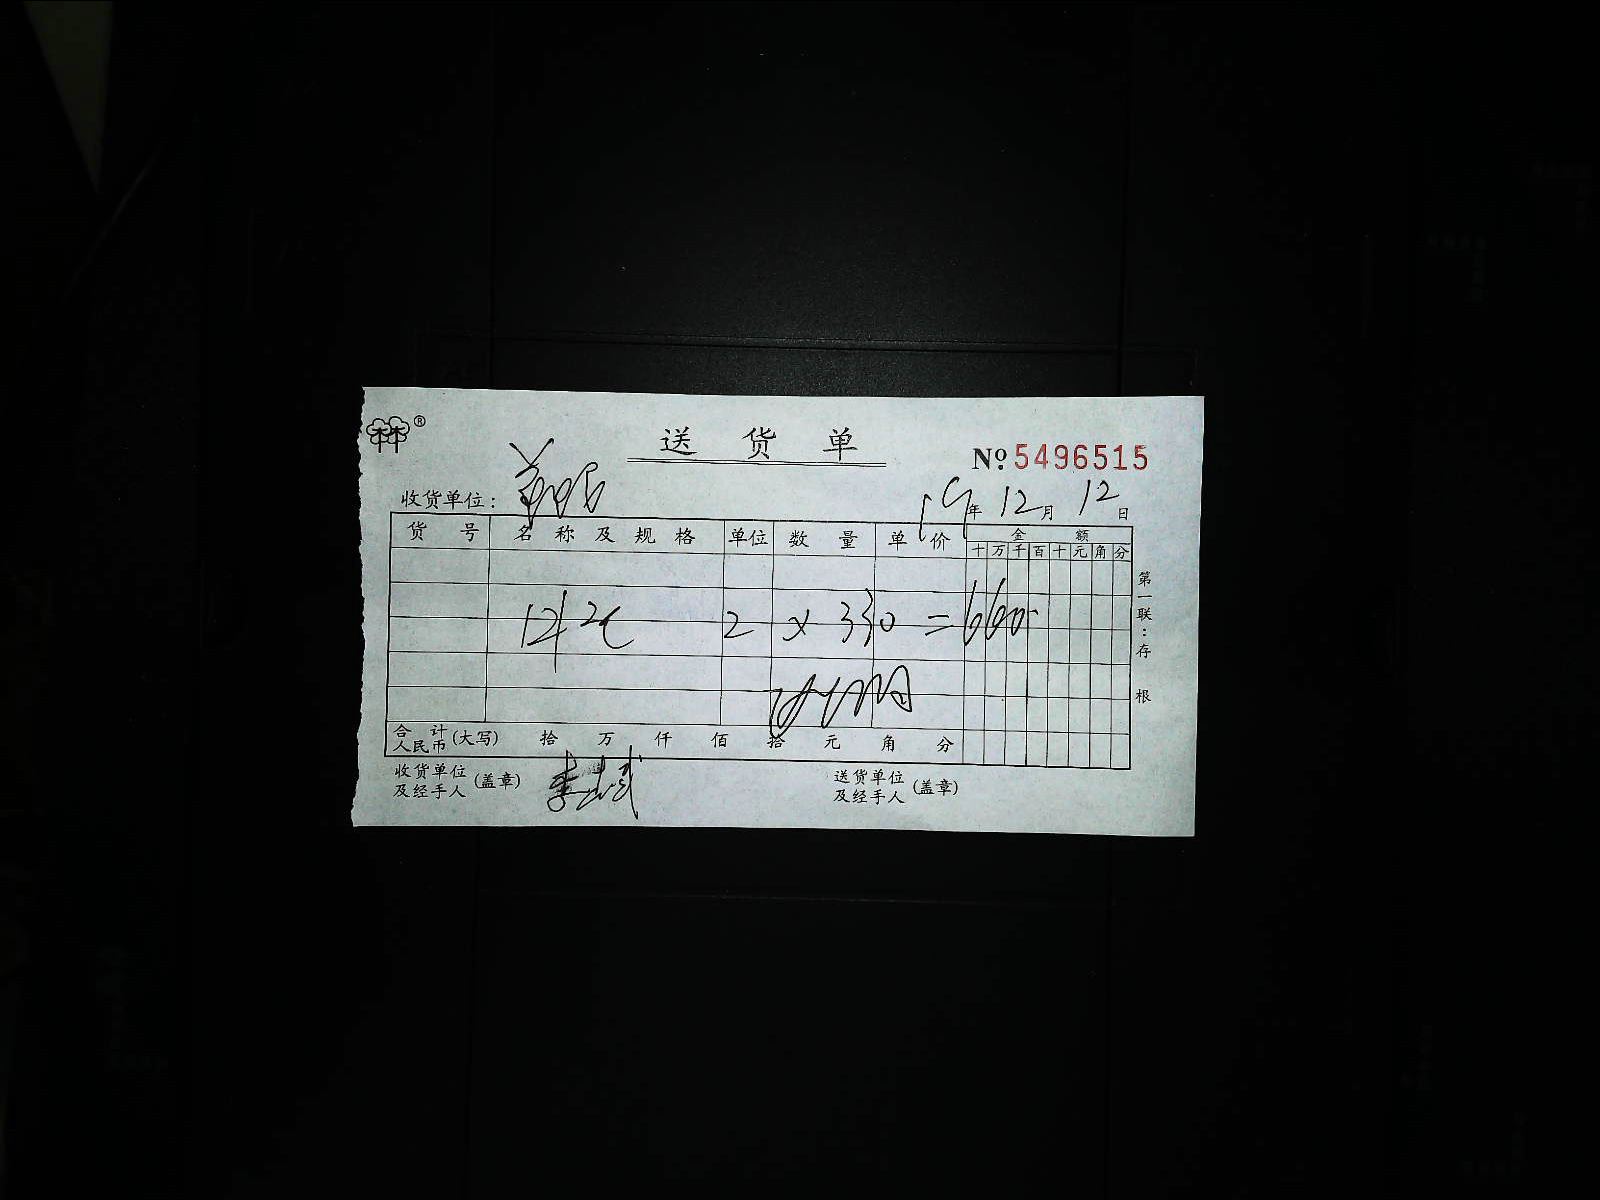 林®
送货单
№ 5496515
收货单位:
19年12月12日
货号 名称及规格 单位 数量 单价 金额
十万千百十元角分
2 x 330 = 660
合计人民币(大写) 拾 万 仟 佰 拾 元 角 分
收货单位及经手人(盖章)
送货单位及经手人(盖章)
第一联:存根